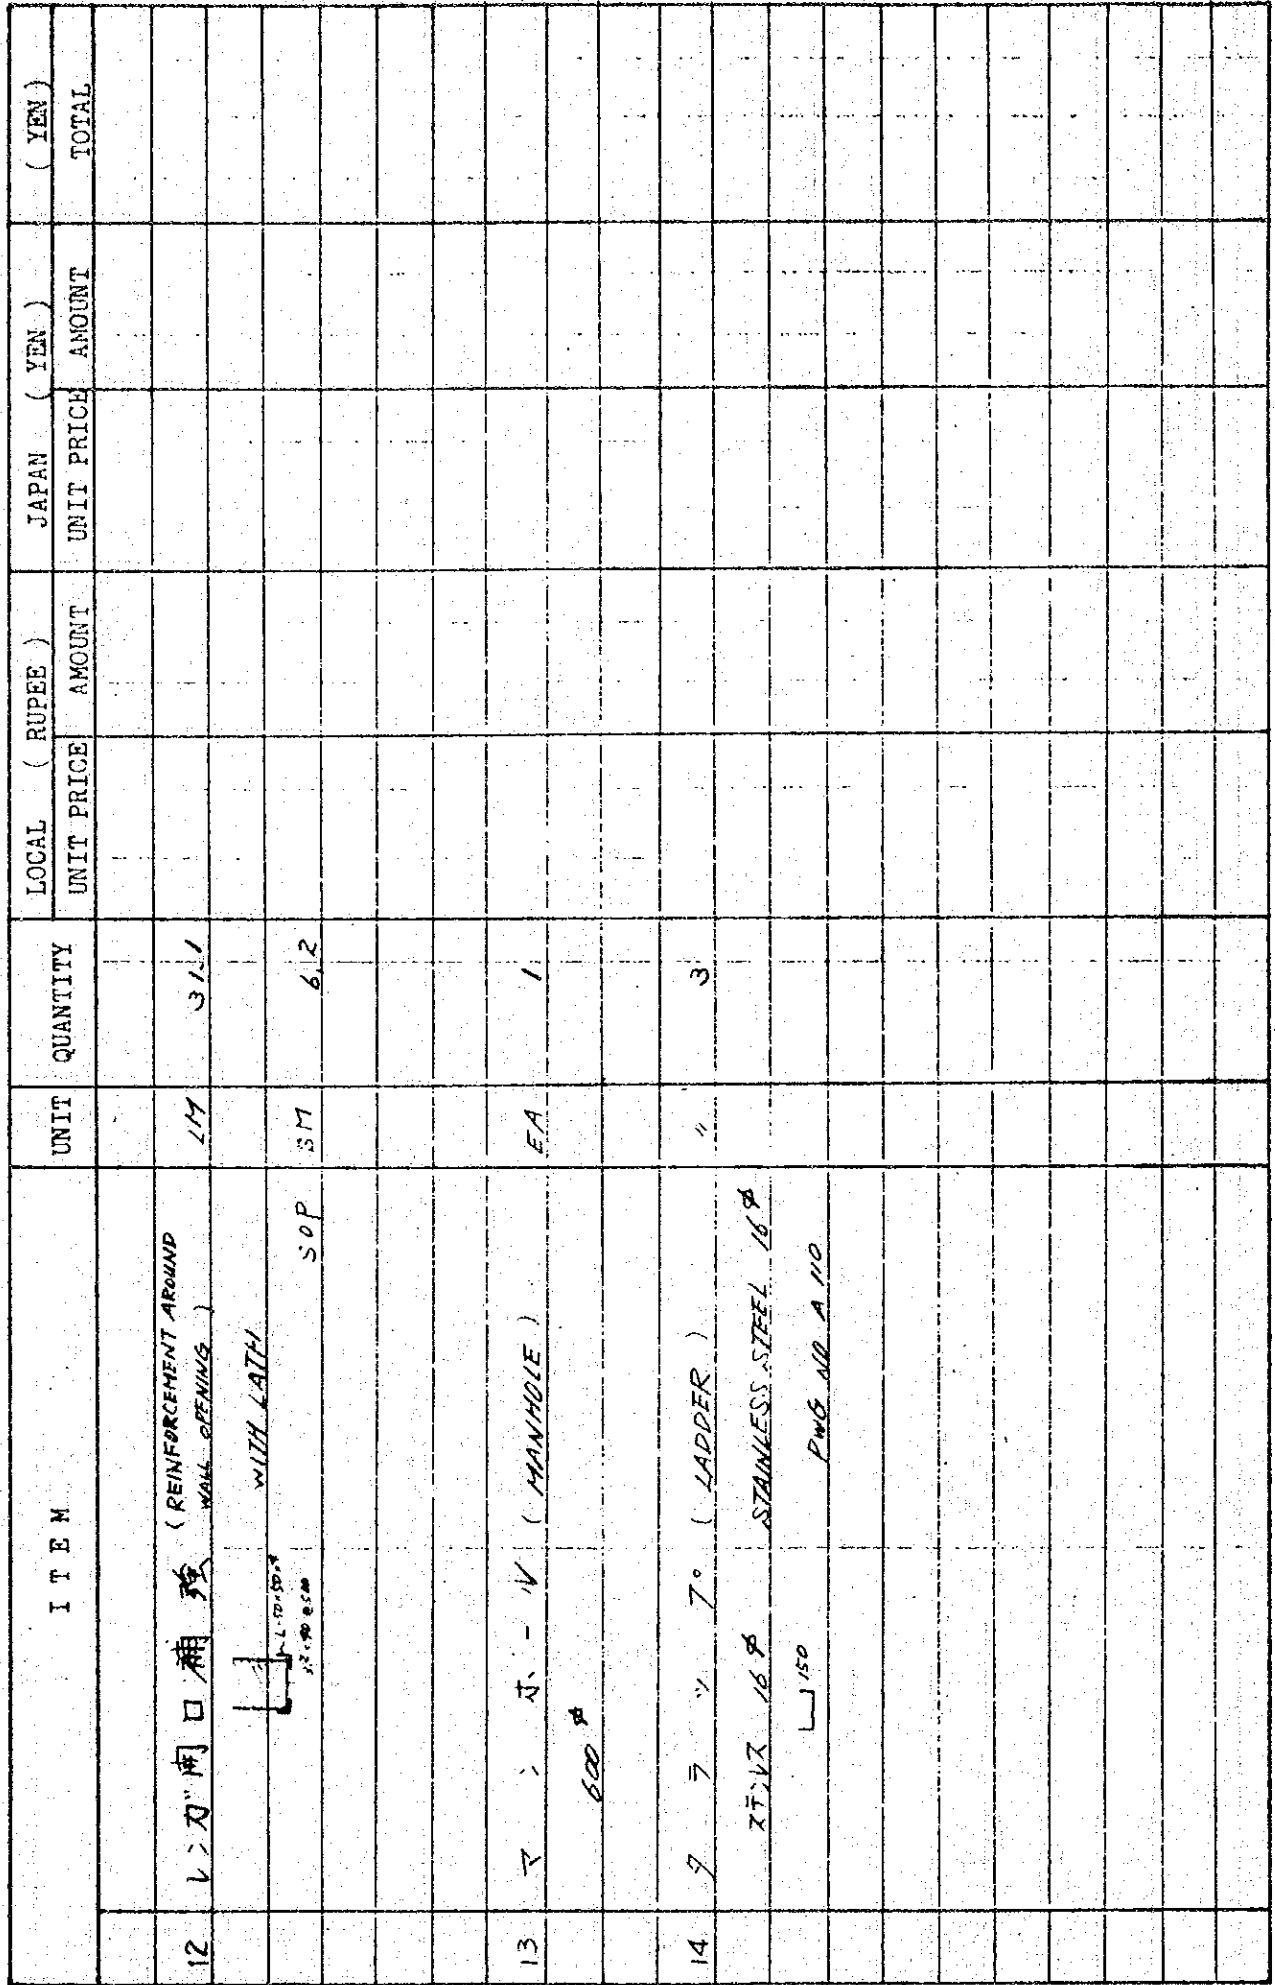 I T E M UNIT QUANTITY LOCAL ( RUPEE ) JAPAN ( YEN ) ( YEN )
UNIT PRICE AMOUNT UNIT PRICE AMOUNT TOTAL
12 レンガ開口補強 (REINFORCEMENT AROUND
WALL OPENING ) LM 31.1
WITH LATH
L-50×50×4
SOP SM 6.2
13 マンホール ( MANHOLE ) EA 1
600 φ
14 タラップ ( LADDER ) 〃 3
ステンレス 16 φ STAINLESS STEEL 16 φ
150 DWG NO A 110